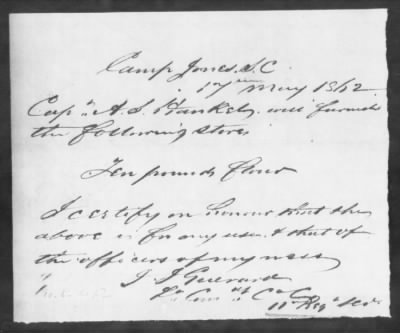 Camp Jones S.C
17th May 1862
Capn A. S. Hankel will furnish
the following stores
Ten pounds flour
I certify on honour that the
above is for my use & that of
the officers of my mess
J J Guerard
Lt Com Co C
11th Regt